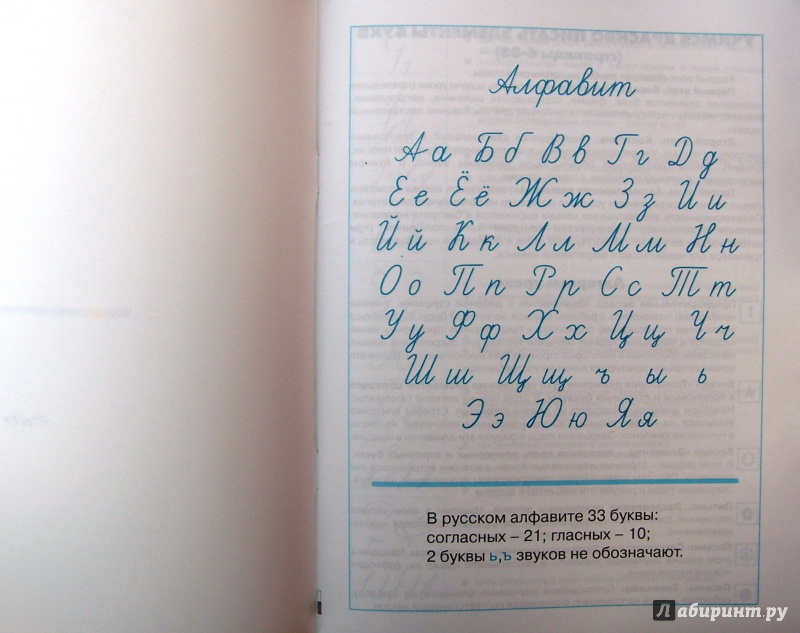 Алфавит
Аа Бб Вв Гг Дд
Ее Ёё Жж Зз Ии
Йй Кк Лл Мм Нн
Оо Пп Рр Сс Тт
Уу Фф Хх Цц Чч
Шш Щщ ъ ы ь
Ээ Юю Яя
В русском алфавите 33 буквы:
согласных – 21; гласных – 10;
2 буквы ь,ъ звуков не обозначают.
Лабиринт.ру